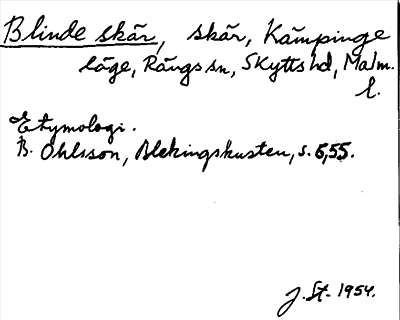 Blinde skär, skär, Kämpinge
läge, Rängs sn, Skytts hd, Malm.
l.
Etymologi.
B. Ohlsson, Blekingskusten, s. 6,55.
J. St. 1954.